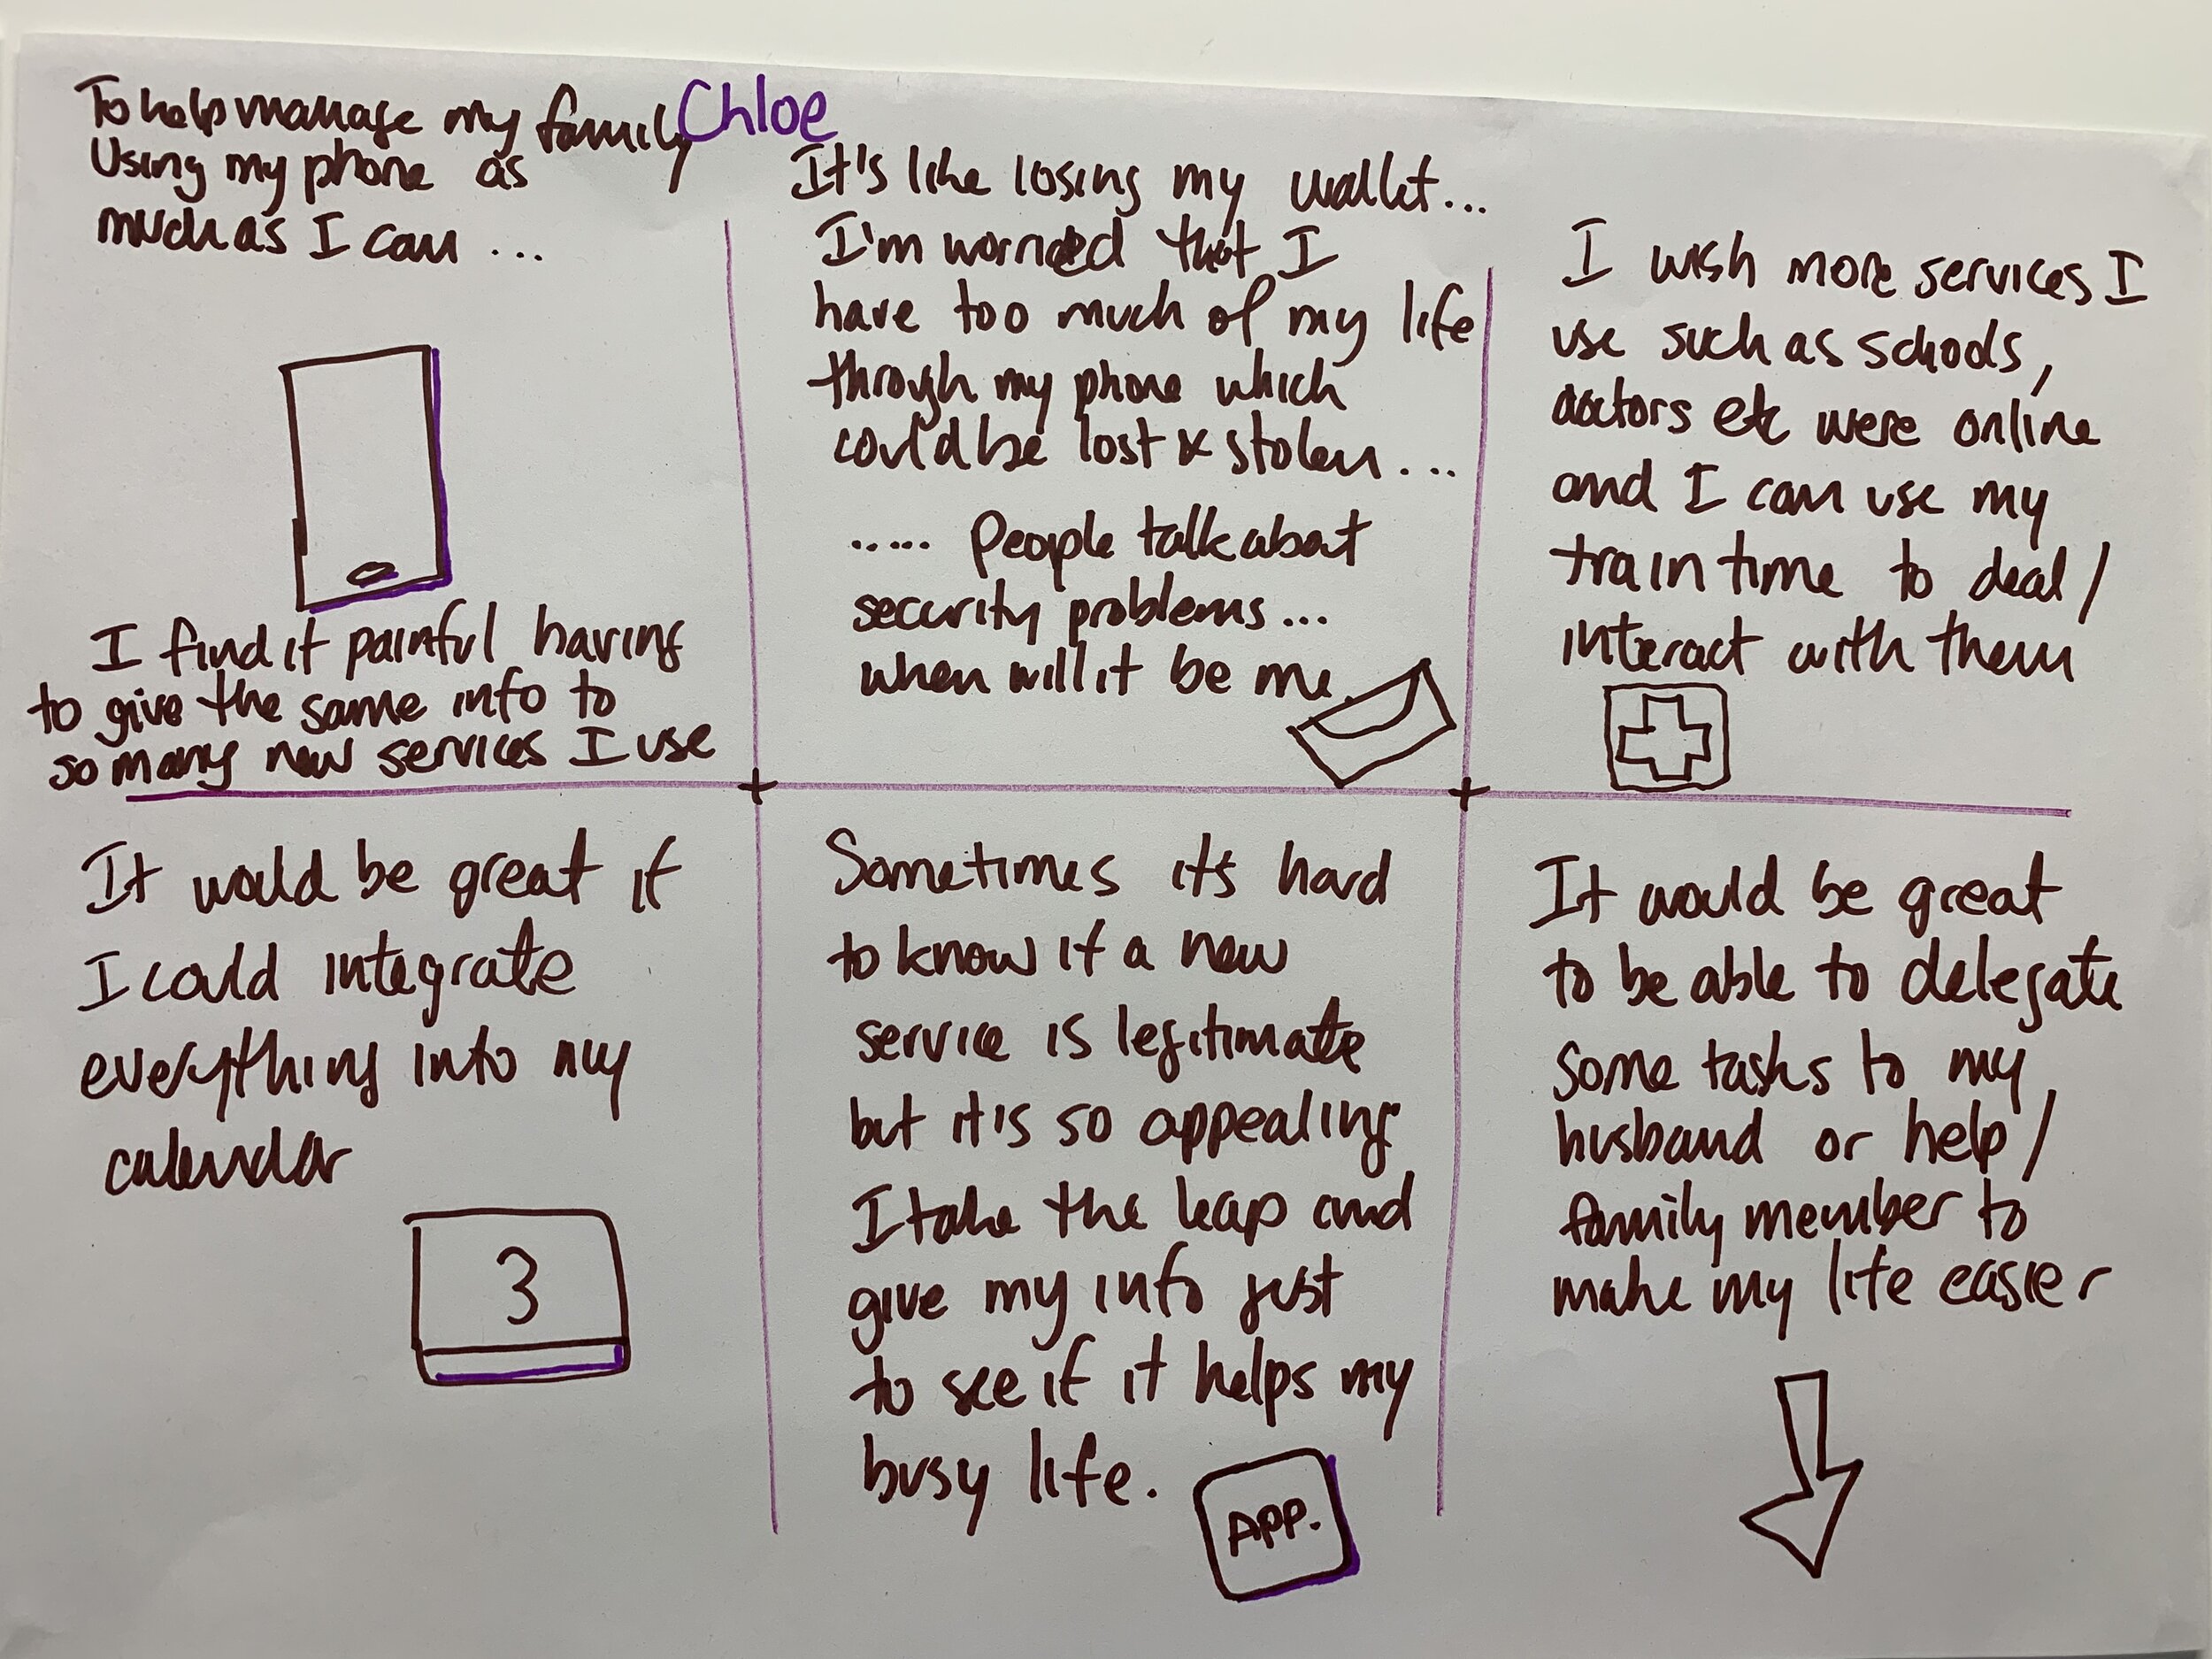 Chloe
To help manage my family
Using my phone as
much as I can ...
I find it painful having
to give the same info to
so many new services I use
It's like losing my wallet...
I'm worried that I
have too much of my life
through my phone which
could be lost & stolen ...
..... People talk about
security problems ...
when will it be me
I wish more services I
use such as schools,
doctors etc were online
and I can use my
train time to deal /
interact with them
It would be great if
I could integrate
everything into my
calendar
3
Sometimes it's hard
to know if a new
service is legitimate
but it is so appealing
I take the leap and
give my info just
to see if it helps my
busy life.
APP.
It would be great
to be able to delegate
some tasks to my
husband or help /
family member to
make my life easier